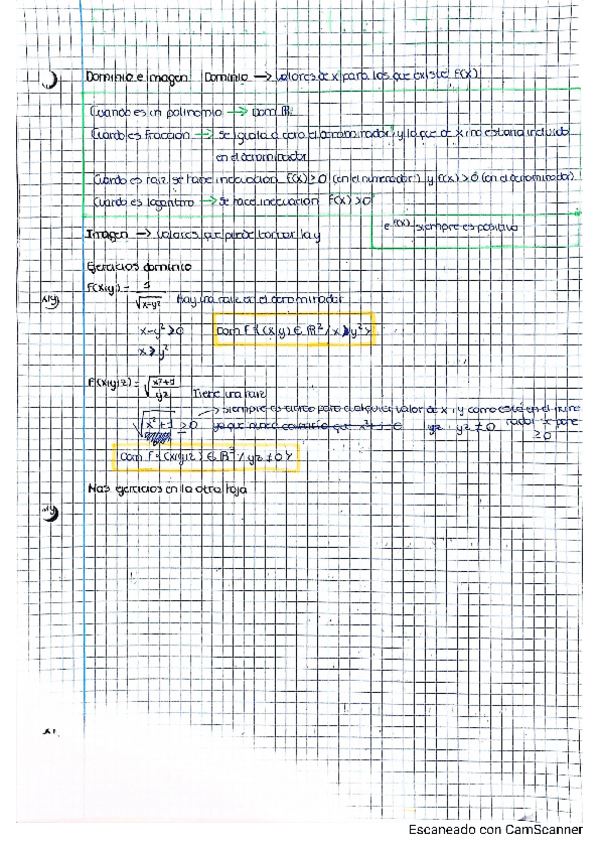 Dominio e imagen Dominio → valores de x para los que existe F(x)
Cuando es un polinomio → Dom ℝ
Cuando es fracción → Se iguala a cero el denominador y lo que dé x no estaría incluido
en el denominador
Cuando es raíz se hace inecuación F(x) ≥ 0 (en el numerador) y F(x) > 0 (en el denominador).
Cuando es logaritmo → Se hace inecuación F(x) > 0
Imagen → valores que puede tomar la y
e^F(x) siempre es positivo
Ejercicios dominio
F(x,y) = 1/√(x-y²) Hay una raíz en el denominador
x-y² > 0 Dom F {(x,y) ∈ ℝ² / x > y²}
x > y²
F(x,y,z) = √((x²+1)/yz) Tiene una raíz
→ siempre es cierto para cualquier valor de x, y como está en el nume
√(x²+1) ≥ 0 ya que nunca x²+1 = 0 yz · yz ≠ 0 rador x pone
≥ 0
Dom F {(x,y,z) ∈ ℝ³ / yz ≠ 0}
Más ejercicios en la otra hoja
Escaneado con CamScanner